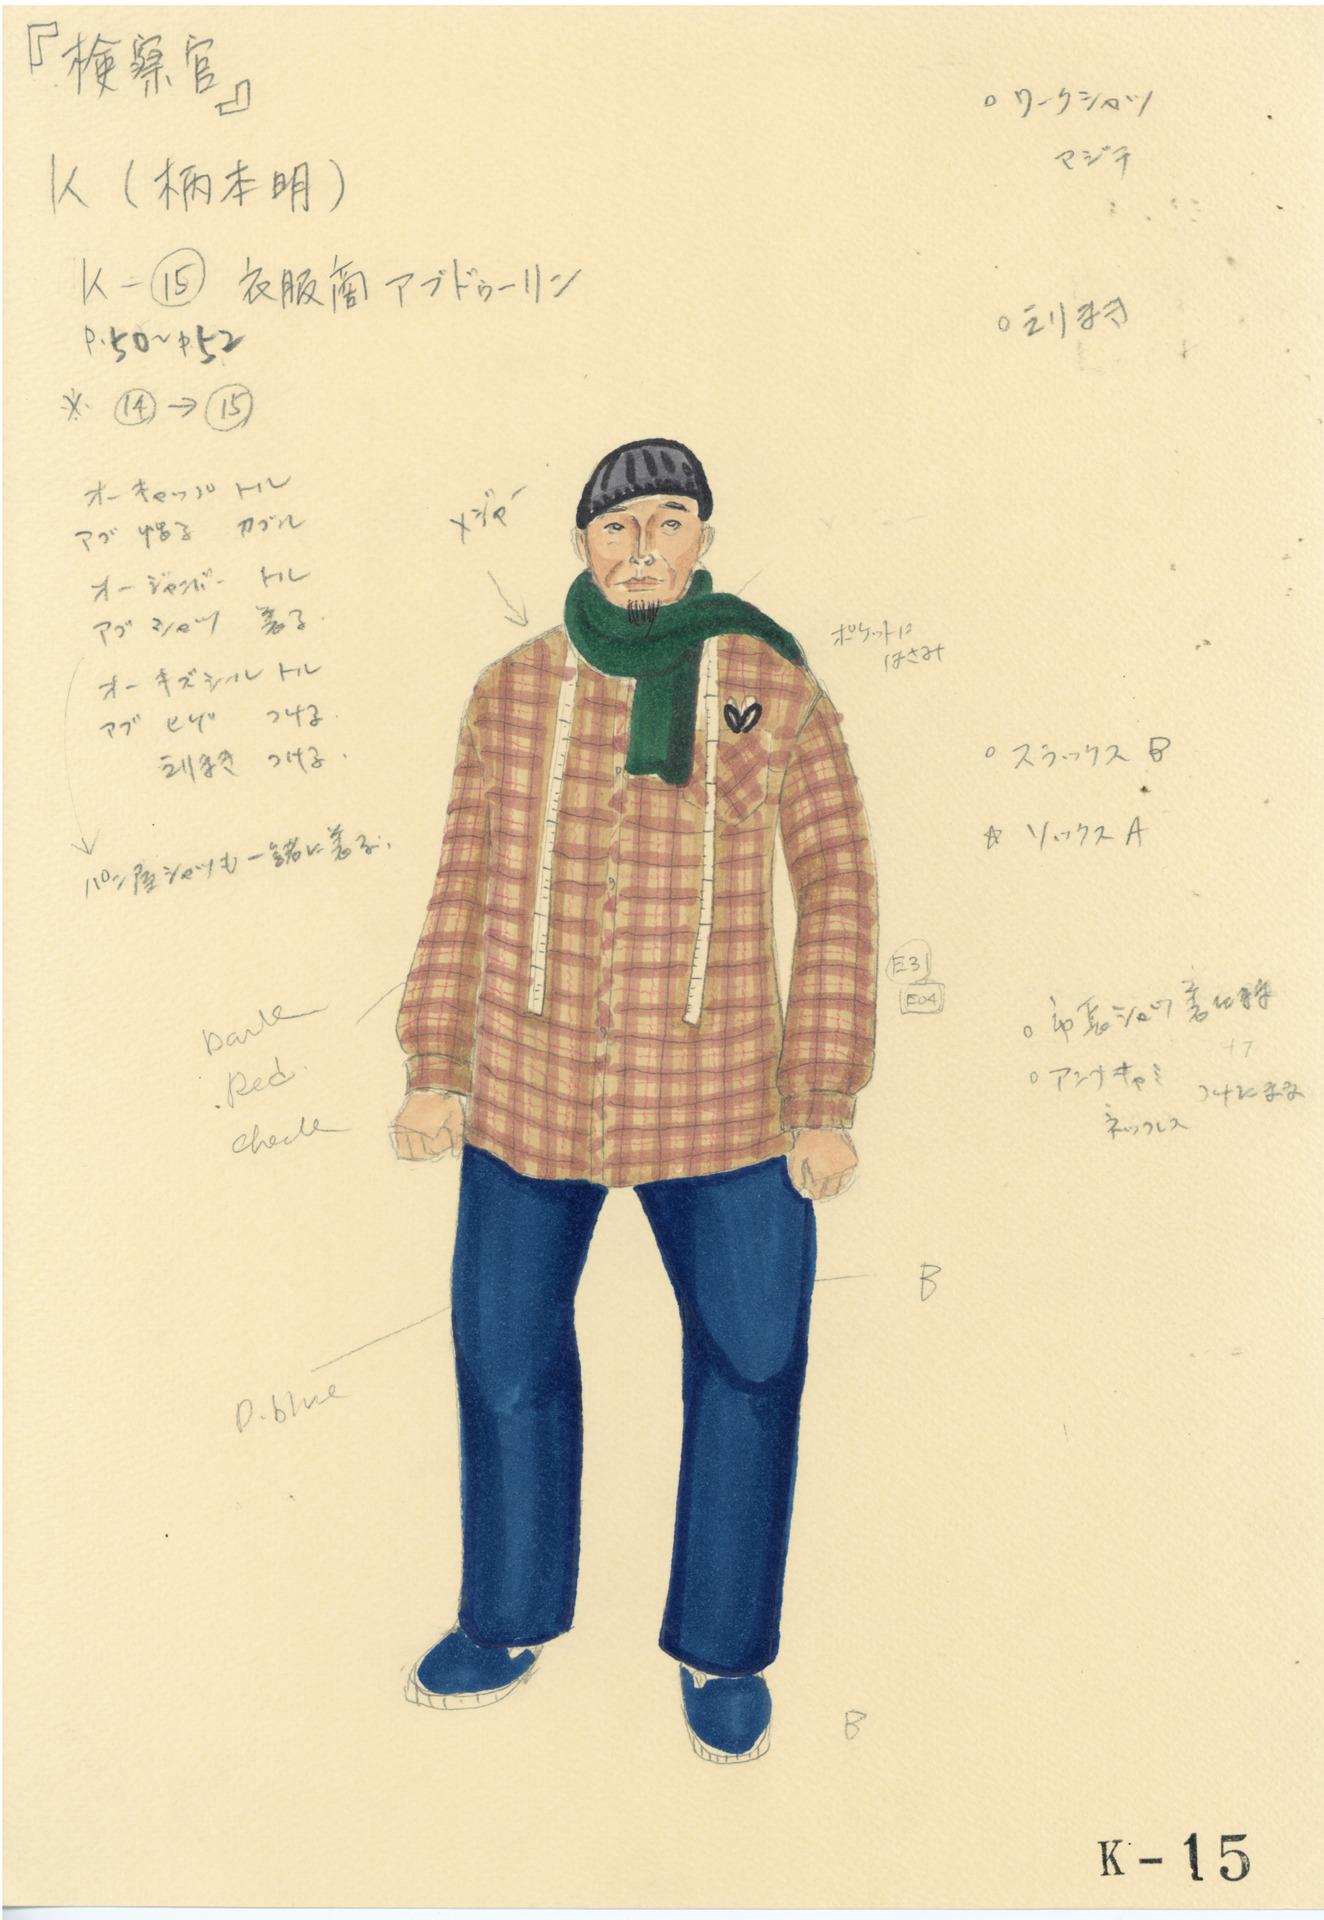 『検察官』
K (柄本明)
K-⑮ 衣服商 アブドゥーリン
P.50~P.52
※ ⑭→⑮
オーキャップ トル
アブ 帽子 カブル
オージャンバー トル
アブシャツ 着る.
オーキズシール トル
アブ ヒゲ つける.
えりまき つける.
パン屋シャツも一緒に着る.
メジャー
ポケットに
はさみ
Dark
Red
check
D.blue
E31
E04
B
B
○ ワークシャツ
マジテ
○ えりまき
○ スラックス B
☆ ソックス A
○ シャツ 着たまま
○ アンナキャミ つけたまま
ネックレス
K-15